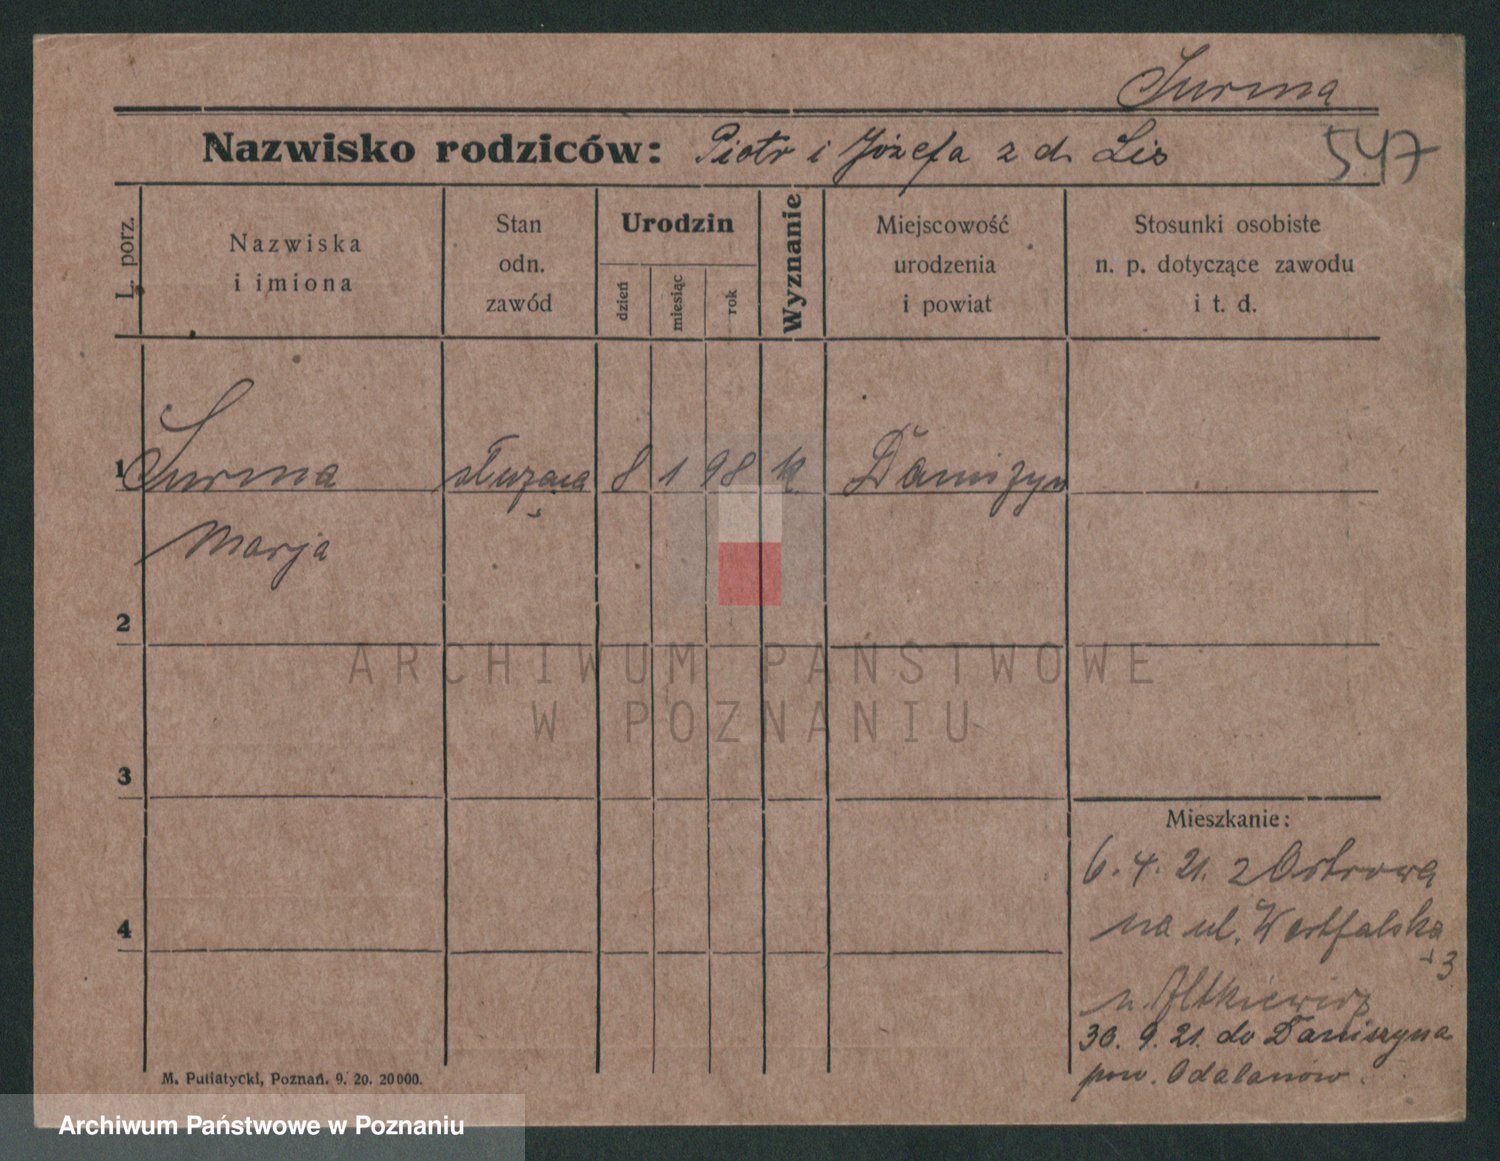 Surma
Nazwisko rodziców: Piotr i Józefa z d. Lis
547
L. porz.
Nazwiska
i imiona
Stan
odn.
zawód
Urodzin
dzień
miesiąc
rok
Wyznanie
Miejscowość
urodzenia
i powiat
Stosunki osobiste
n. p. dotyczące zawodu
i t. d.
1 Surma służąca 8 1 98 k Daniszyn
Marja
2
3
4
Mieszkanie:
6. 4. 21. z Ostrowa
na ul. Westfalska
3
u.
30. 9. 21. do Daniszyna
pow. Odalanów.
M. Putiatycki, Poznań. 9. 20. 20000.
ARCHIWUM PAŃSTWOWE
W POZNANIU
Archiwum Państwowe w Poznaniu